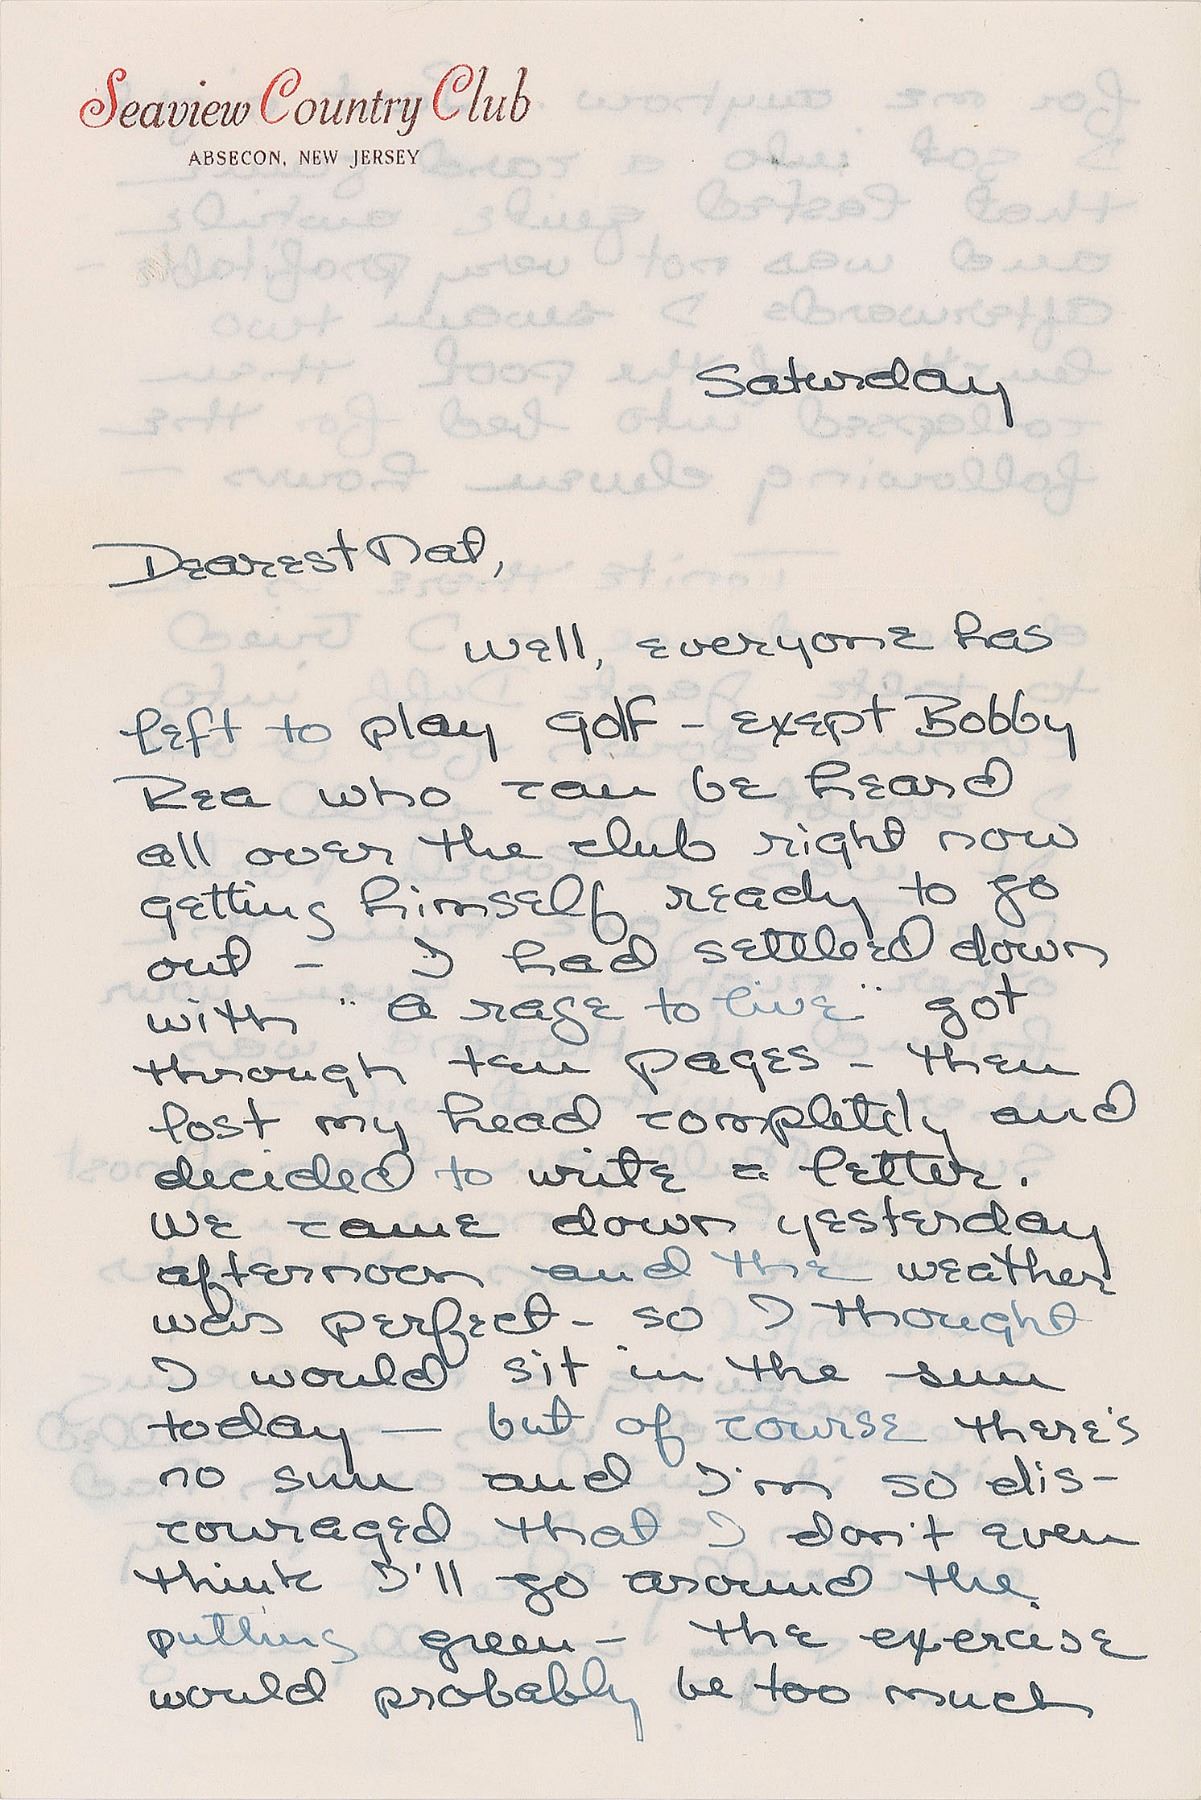 Seaview Country Club
ABSECON, NEW JERSEY
Saturday
Dearest Nat,
Well, everyone has
left to play golf - exept Bobby
Rea who can be heard
all over the club right now
getting himself ready to go
out - I had settled down
with "a rage to live" got
through ten pages - then
lost my head completly and
decided to write a letter.
We came down yesterday
afternoon and the weather
was perfect - so I thought
I would sit in the sun
today — but of course there's
no sun and I'm so dis-
couraged that I don't even
think I'll go around the
putting green - the exercise
would probably be too much